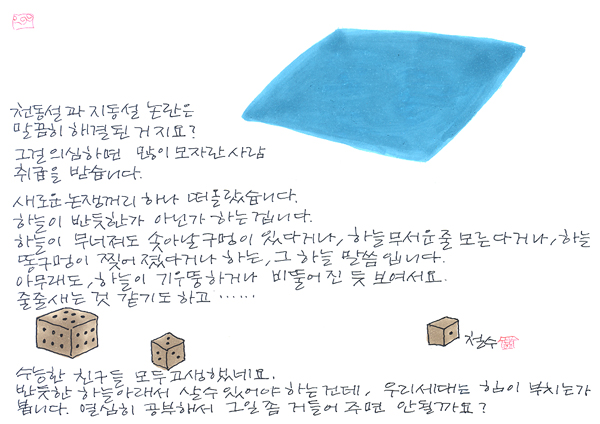 천동설과 지동설 논란은
말끔히 해결된 거지요?
그걸 의심하면 많이 모자란 사람
취급을 받습니다.
새로운 논쟁꺼리 하나 떠올랐습니다.
하늘이 반듯한가 아닌가 하는겁니다.
하늘이 무너져도 솟아날 구멍이 있다거나, 하늘 무서운 줄 모른다거나, 하늘
똥구멍이 찢어졌다거나 하는, 그 하늘 말씀입니다.
아무래도, 하늘이 기우뚱하거나 비뚤어진 듯 보여서요.
줄줄새는 것 같기도 하고 ……
철수
수능한 친구들 모두 고생했네요.
반듯한 하늘아래서 살 수 있어야 하는건데, 우리세대는 힘이 부치는가
봅니다. 열심히 공부해서 그일 좀 거들어 주면 안될까요?